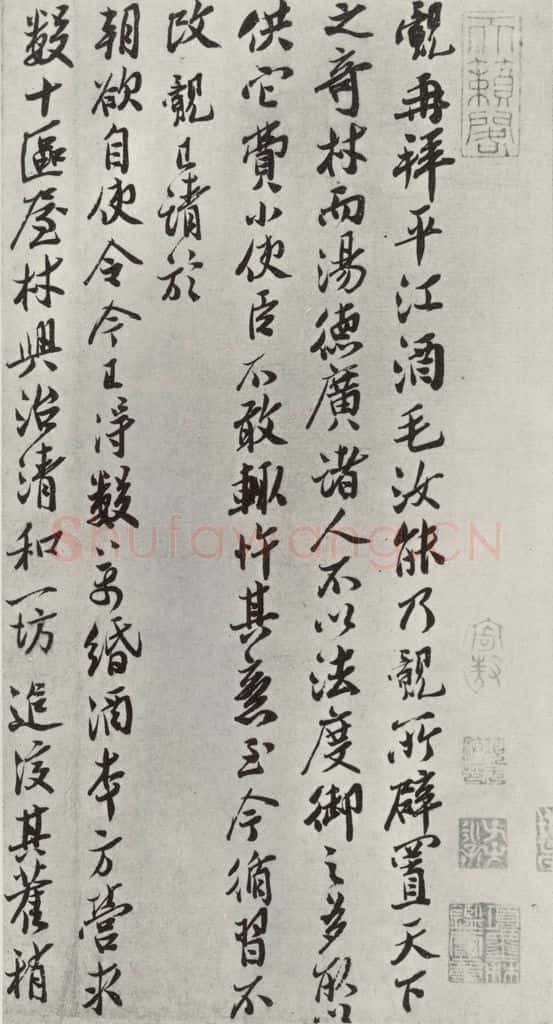 天籟閣
覿再拜平江酒毛汝能乃覿所辟置天下
之奇材而湯德廣諸人不以法度御之多
供它費小使臣不敢輙忤其意至今循習不
改覿已請於
朝欲自使令今已得數緡酒本方營求
數十區屋材興治清和一坊追復其舊稍
Shufawang.CN